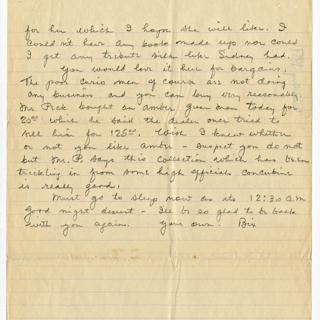 for her which I hope she will like. I
couldn't have any books made up nor could
I get any tribute silk like Sidney had.
You would love it here for bargains.
The poor curio men of course are not doing
any business and you can buy very reasonably.
Mr Peck bought an amber Kwan today for
20.00 which he said the dealer once tried to
sell him for 125.00. Wish I knew whether
or not you like amber - suspect you do not
but Mr. P. says this collection which has been
trickling in from some high officials concubine
is really good.
Must go to sleep now as its 12:30 A.M
Good night dearest - I'll be so glad to be back
with you again. Your own. Bix